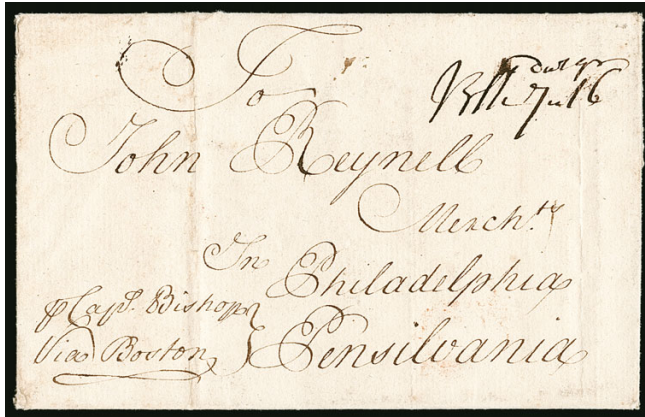 To
John Reynell
Mercht.
In Philadelphia
Pensilvania
p Capt. Bishop
Via Boston
dwt gr
16